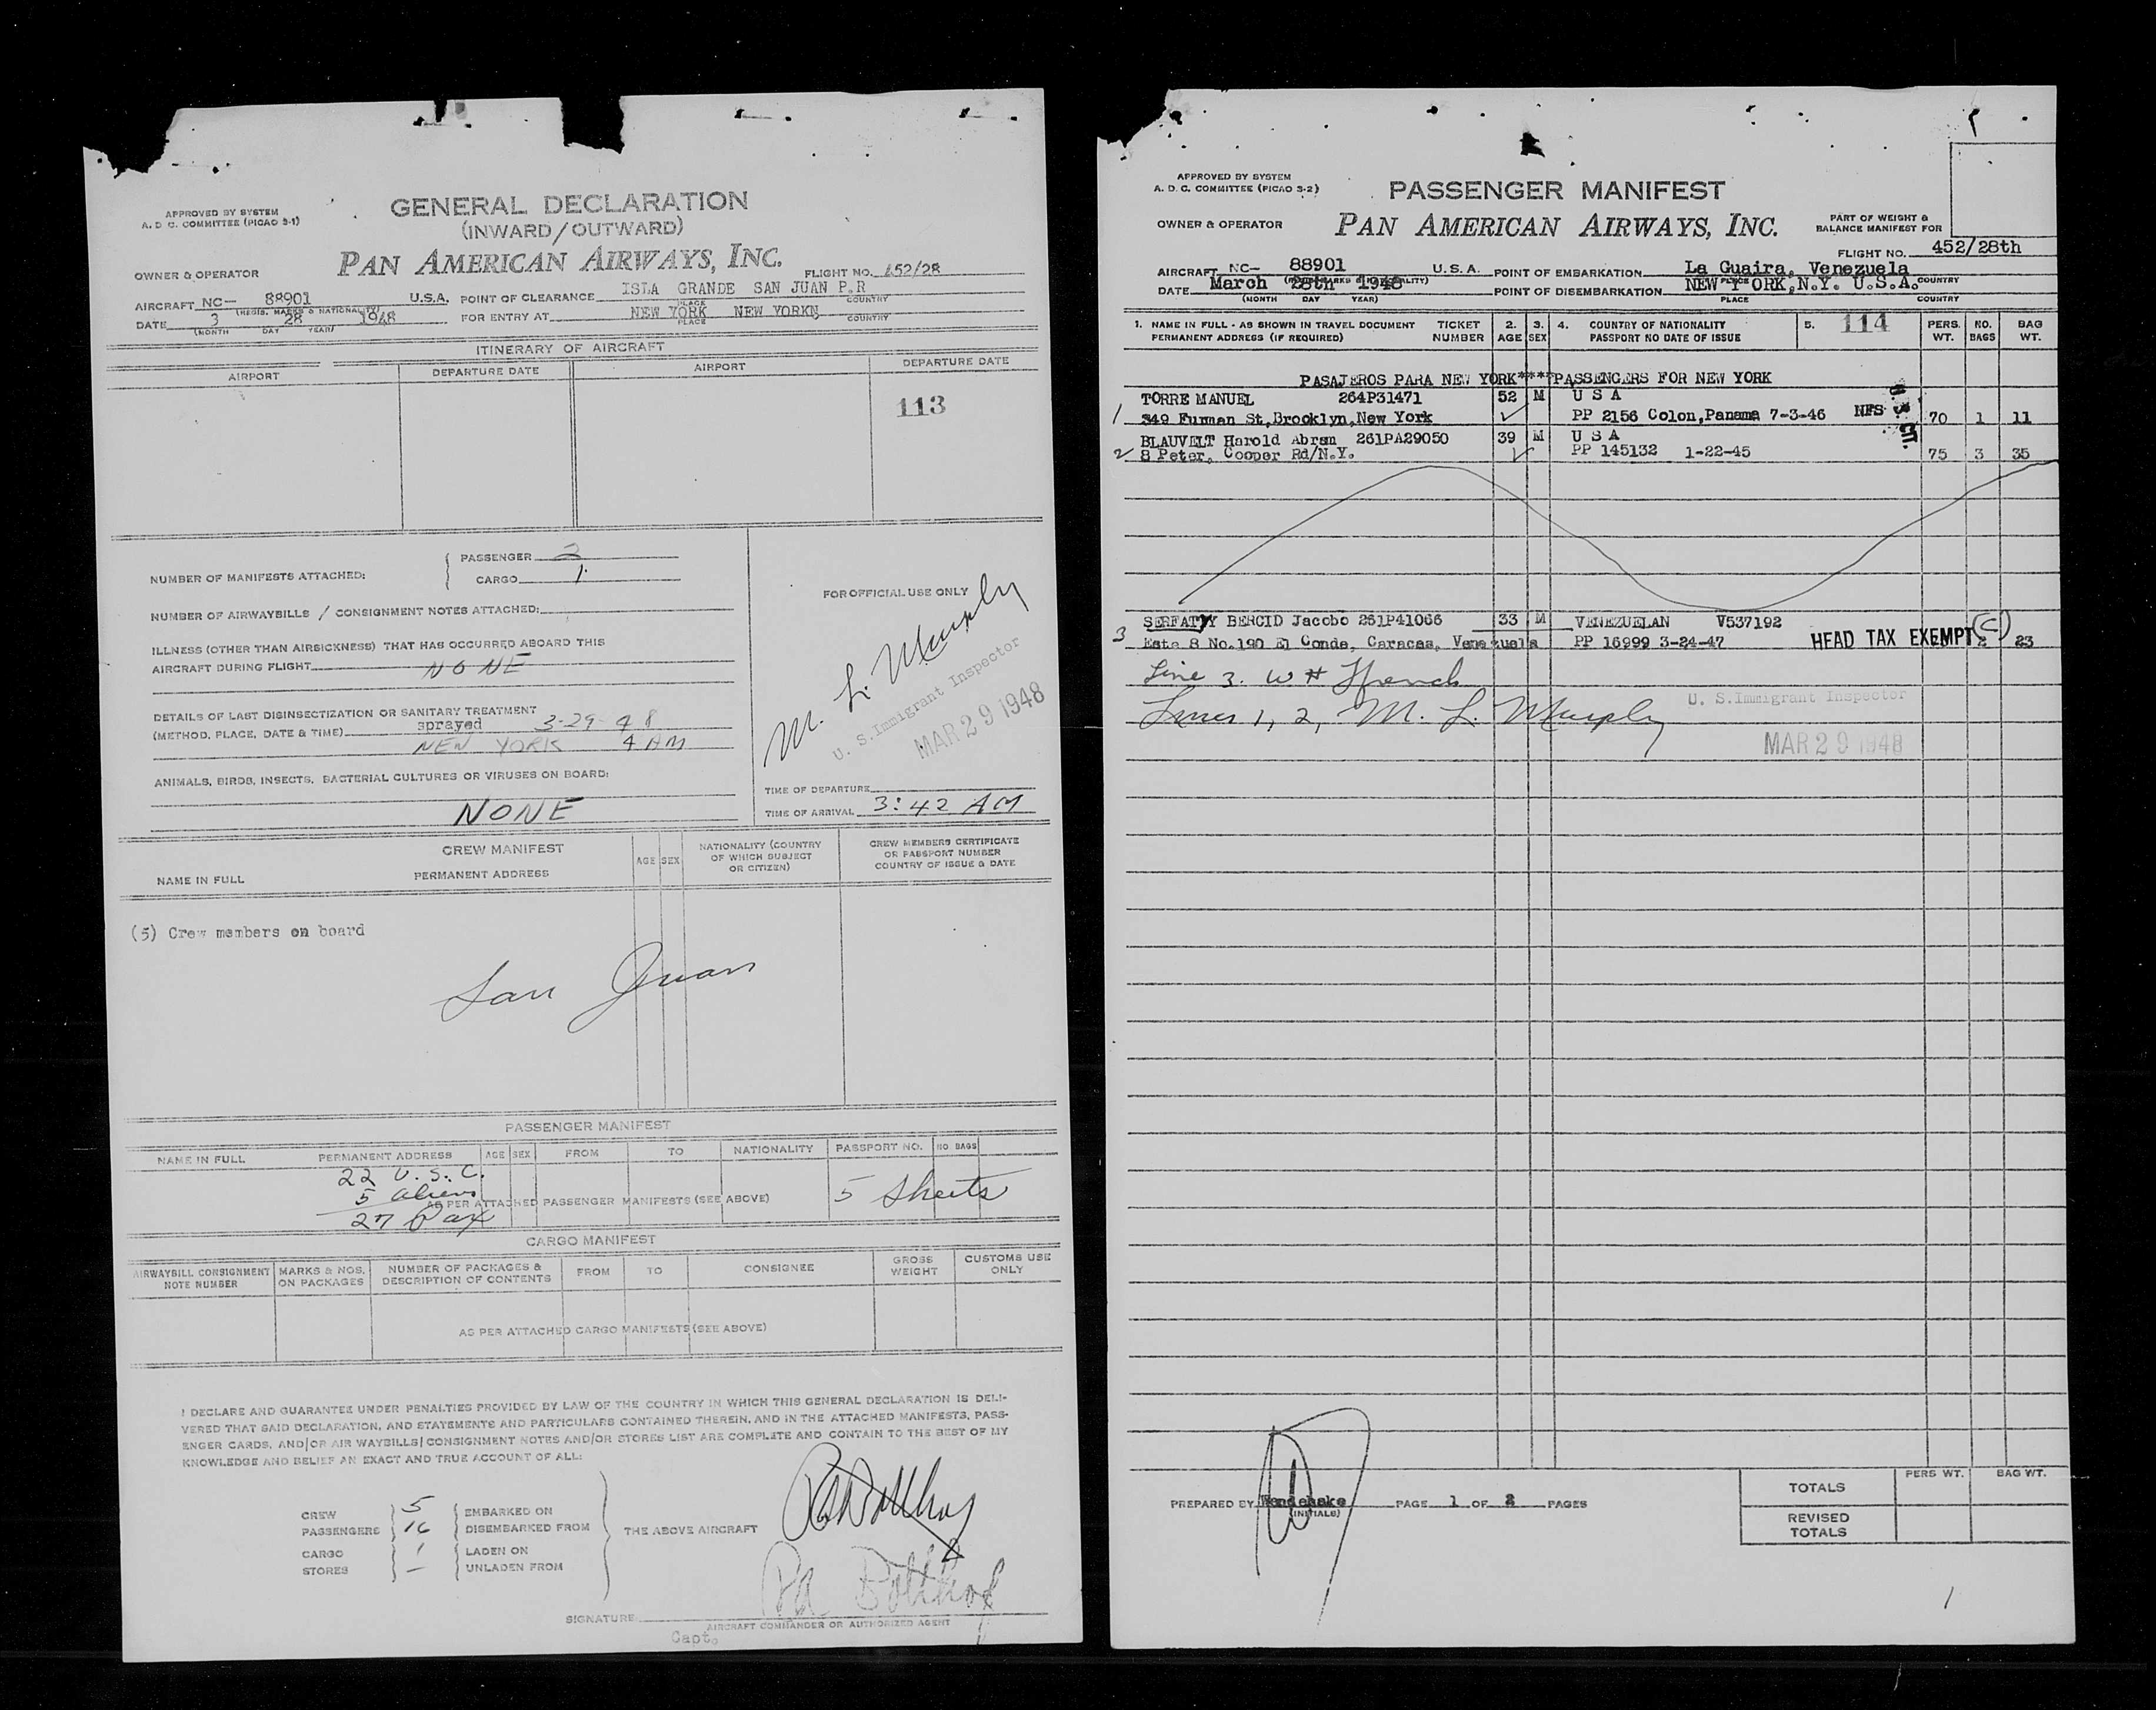 APPROVED BY SYSTEM
A. D. C. COMMITTEE (PICAO 3-1)
GENERAL DECLARATION
(INWARD/OUTWARD)
OWNER & OPERATOR
PAN AMERICAN AIRWAYS, INC.
FLIGHT NO. 452/28
AIRCRAFT NC- 88901 U.S.A. POINT OF CLEARANCE ISLA GRANDE SAN JUAN P.R
(REGIS. MARKS & NATIONALITY) PLACE COUNTRY
DATE 3 28 1948 FOR ENTRY AT NEW YORK NEW YORKN
(MONTH DAY YEAR) PLACE COUNTRY
ITINERARY OF AIRCRAFT
AIRPORT DEPARTURE DATE AIRPORT DEPARTURE DATE
113
NUMBER OF MANIFESTS ATTACHED:
PASSENGER 2
CARGO 1
NUMBER OF AIRWAYBILLS / CONSIGNMENT NOTES ATTACHED:
ILLNESS (OTHER THAN AIRSICKNESS) THAT HAS OCCURRED ABOARD THIS
AIRCRAFT DURING FLIGHT NONE
DETAILS OF LAST DISINSECTIZATION OR SANITARY TREATMENT
(METHOD, PLACE, DATE & TIME) sprayed 3-29-48
NEW YORK 4 AM
ANIMALS, BIRDS, INSECTS, BACTERIAL CULTURES OR VIRUSES ON BOARD:
NONE
FOR OFFICIAL USE ONLY
M. L. Murphy
U. S. Immigrant Inspector
MAR 29 1948
TIME OF DEPARTURE
TIME OF ARRIVAL 3:42 AM
CREW MANIFEST
NAME IN FULL PERMANENT ADDRESS AGE SEX NATIONALITY (COUNTRY OF WHICH SUBJECT OR CITIZEN) CREW MEMBERS CERTIFICATE OR PASSPORT NUMBER COUNTRY OF ISSUE & DATE
(5) Crew members on board
San Juan
PASSENGER MANIFEST
NAME IN FULL PERMANENT ADDRESS AGE SEX FROM TO NATIONALITY PASSPORT NO. NO BAGS
22 U.S.C.
5 aliens
AS PER ATTACHED PASSENGER MANIFESTS (SEE ABOVE) 5 Sheets
27 Pax
CARGO MANIFEST
AIRWAYBILL CONSIGNMENT NOTE NUMBER MARKS & NOS. ON PACKAGES NUMBER OF PACKAGES & DESCRIPTION OF CONTENTS FROM TO CONSIGNEE GROSS WEIGHT CUSTOMS USE ONLY
AS PER ATTACHED CARGO MANIFESTS (SEE ABOVE)
I DECLARE AND GUARANTEE UNDER PENALTIES PROVIDED BY LAW OF THE COUNTRY IN WHICH THIS GENERAL DECLARATION IS DELI-
VERED THAT SAID DECLARATION, AND STATEMENTS AND PARTICULARS CONTAINED THEREIN, AND IN THE ATTACHED MANIFESTS, PASS-
ENGER CARDS, AND/OR AIR WAYBILLS/CONSIGNMENT NOTES AND/OR STORES LIST ARE COMPLETE AND CONTAIN TO THE BEST OF MY
KNOWLEDGE AND BELIEF AN EXACT AND TRUE ACCOUNT OF ALL:
CREW 5 EMBARKED ON
PASSENGERS 16 DISEMBARKED FROM THE ABOVE AIRCRAFT
CARGO 1 LADEN ON
STORES — UNLADEN FROM
SIGNATURE
AIRCRAFT COMMANDER OR AUTHORIZED AGENT
Capt.
APPROVED BY SYSTEM
A. D. C. COMMITTEE (PICAO 3-2)
PASSENGER MANIFEST
OWNER & OPERATOR
PAN AMERICAN AIRWAYS, INC.
PART OF WEIGHT &
BALANCE MANIFEST FOR
FLIGHT NO. 452/28th
AIRCRAFT NC- 88901 U.S.A. POINT OF EMBARKATION La Guaira, Venezuela
(REGIS. MARKS & NATIONALITY) PLACE COUNTRY
DATE March 28th 1948 POINT OF DISEMBARKATION NEW YORK,N.Y. U.S.A.
(MONTH DAY YEAR) PLACE COUNTRY
1. NAME IN FULL - AS SHOWN IN TRAVEL DOCUMENT TICKET 2. 3. 4. COUNTRY OF NATIONALITY 5. 114 PERS. NO. BAG
PERMANENT ADDRESS (IF REQUIRED) NUMBER AGE SEX PASSPORT NO DATE OF ISSUE WT. BAGS WT.
PASAJEROS PARA NEW YORK****PASSENGERS FOR NEW YORK
TORRE MANUEL 264P31471 52 M U S A
1 349 Furman St,Brooklyn,New York PP 2156 Colon,Panama 7-3-46 NFS 70 1 11
BLAUVELT Harold Abram 261PA29050 39 M U S A
2 8 Peter, Cooper Rd/N.Y. PP 145132 1-22-45 75 3 35
SERFATY BERCID Jacobo 261P41066 33 M VENEZUELAN V537192
3 Este 8 No.190 El Conde, Caracas, Venezuela PP 16999 3-24-47 HEAD TAX EXEMPT (C) 2 23
Line 3. W H French
Lines 1, 2, M. L. Murphy
U. S. Immigrant Inspector
MAR 29 1948
PREPARED BY PAGE 1 OF 2 PAGES
(INITIALS)
PERS WT. BAG WT.
TOTALS
REVISED
TOTALS
1